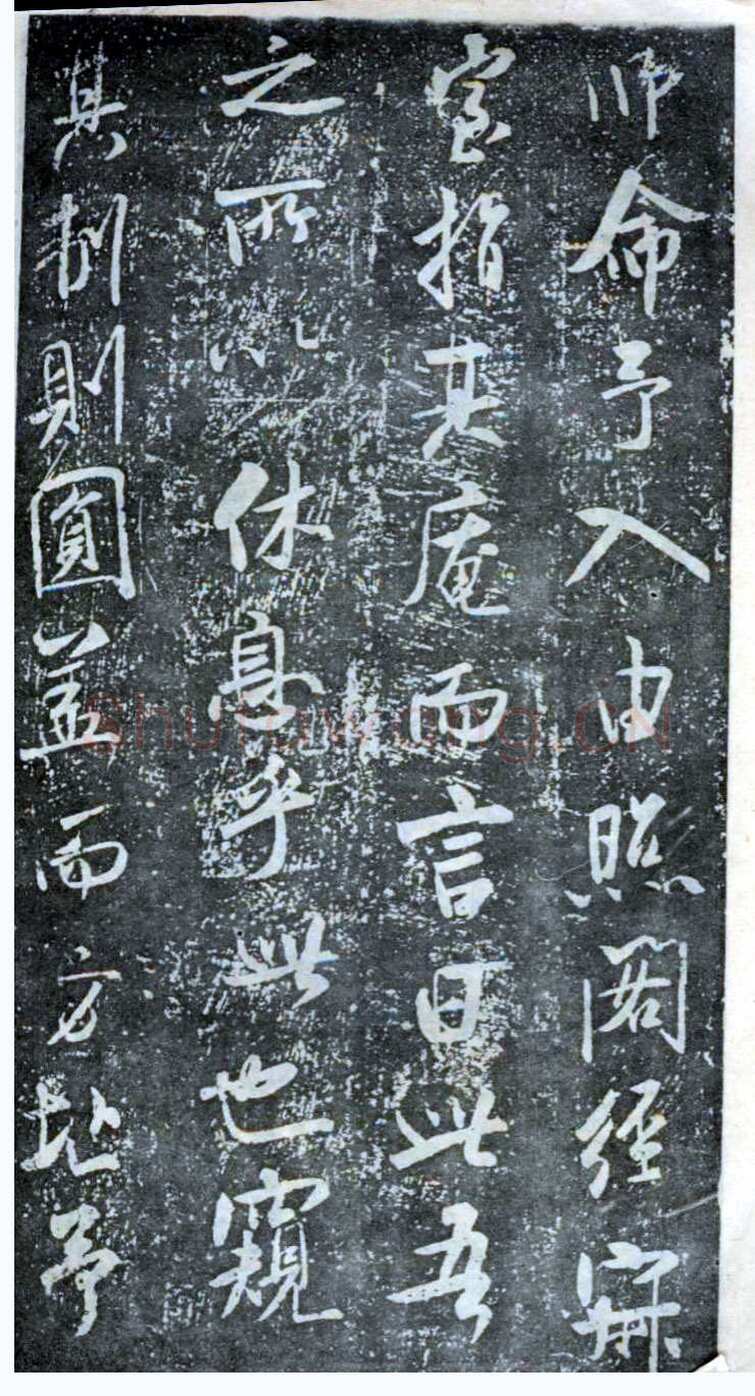 師命予入由照閣經寂
室指其庵而言曰此吾
之所以休息乎此也窺
其制則圓盖而方址予
Shufawang.CN